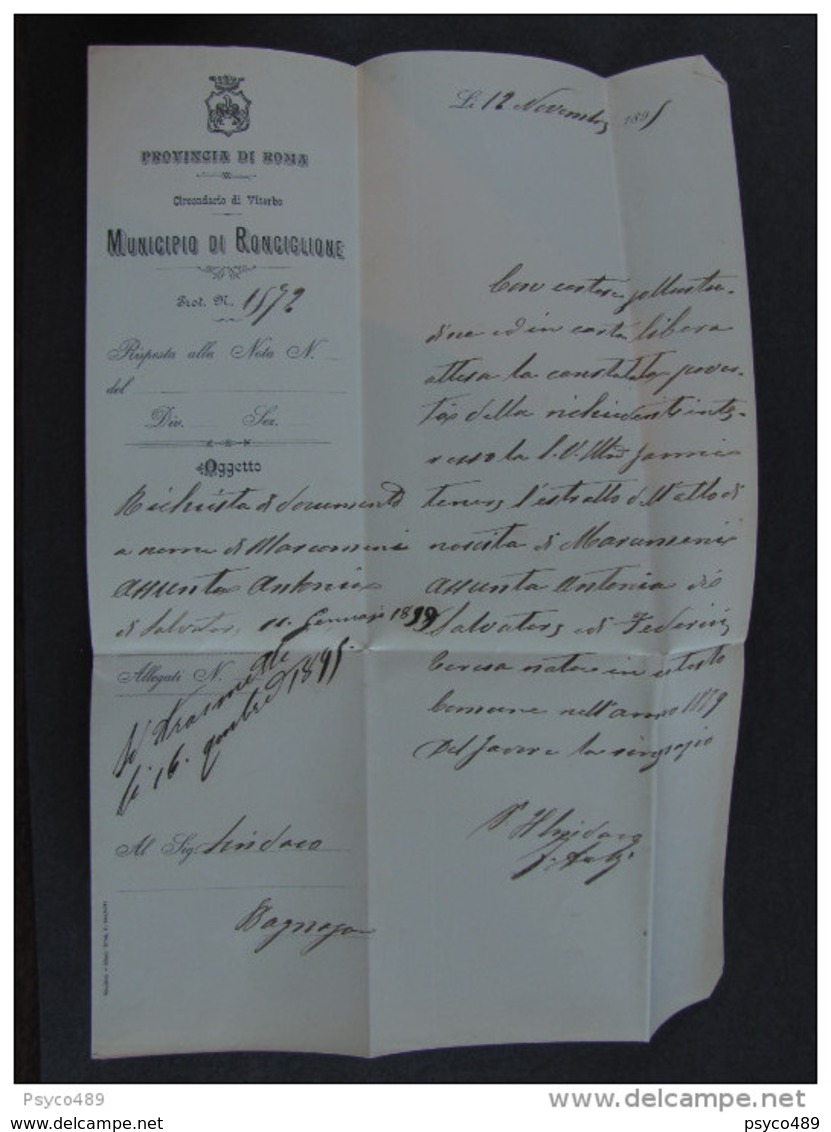 PROVINCIA DI ROMA
Circondario di Viterbo
MUNICIPIO DI RONCIGLIONE
Prot. N. 1572
Risposta alla Nota N.
del
Div. Sez.
Oggetto
Richiesta di documento
a nome di Marconsini
Assunta Antonia
di Salvatore 11. Gennajo 1879
Allegati N.
li 16. 9mbre 1895.
Al Sig. Sindaco
Bagnaja
Li 12 Novembre 1895
Con cortese sollecitu-
dine ed in carta libera
attesa la constatata pover-
tà della richiedente inte-
resso la S.V. Illma farmi
tenere l'estratto dell'atto di
nascita di Marconsini
Assunta Antonia di
Salvatore e di Federici
Teresa nata in cotesto
Comune nell'anno 1879
Del favore la ringrazio
Il Sindaco
Psyco489
delcampe.net
www.delcampe.net
psyco489